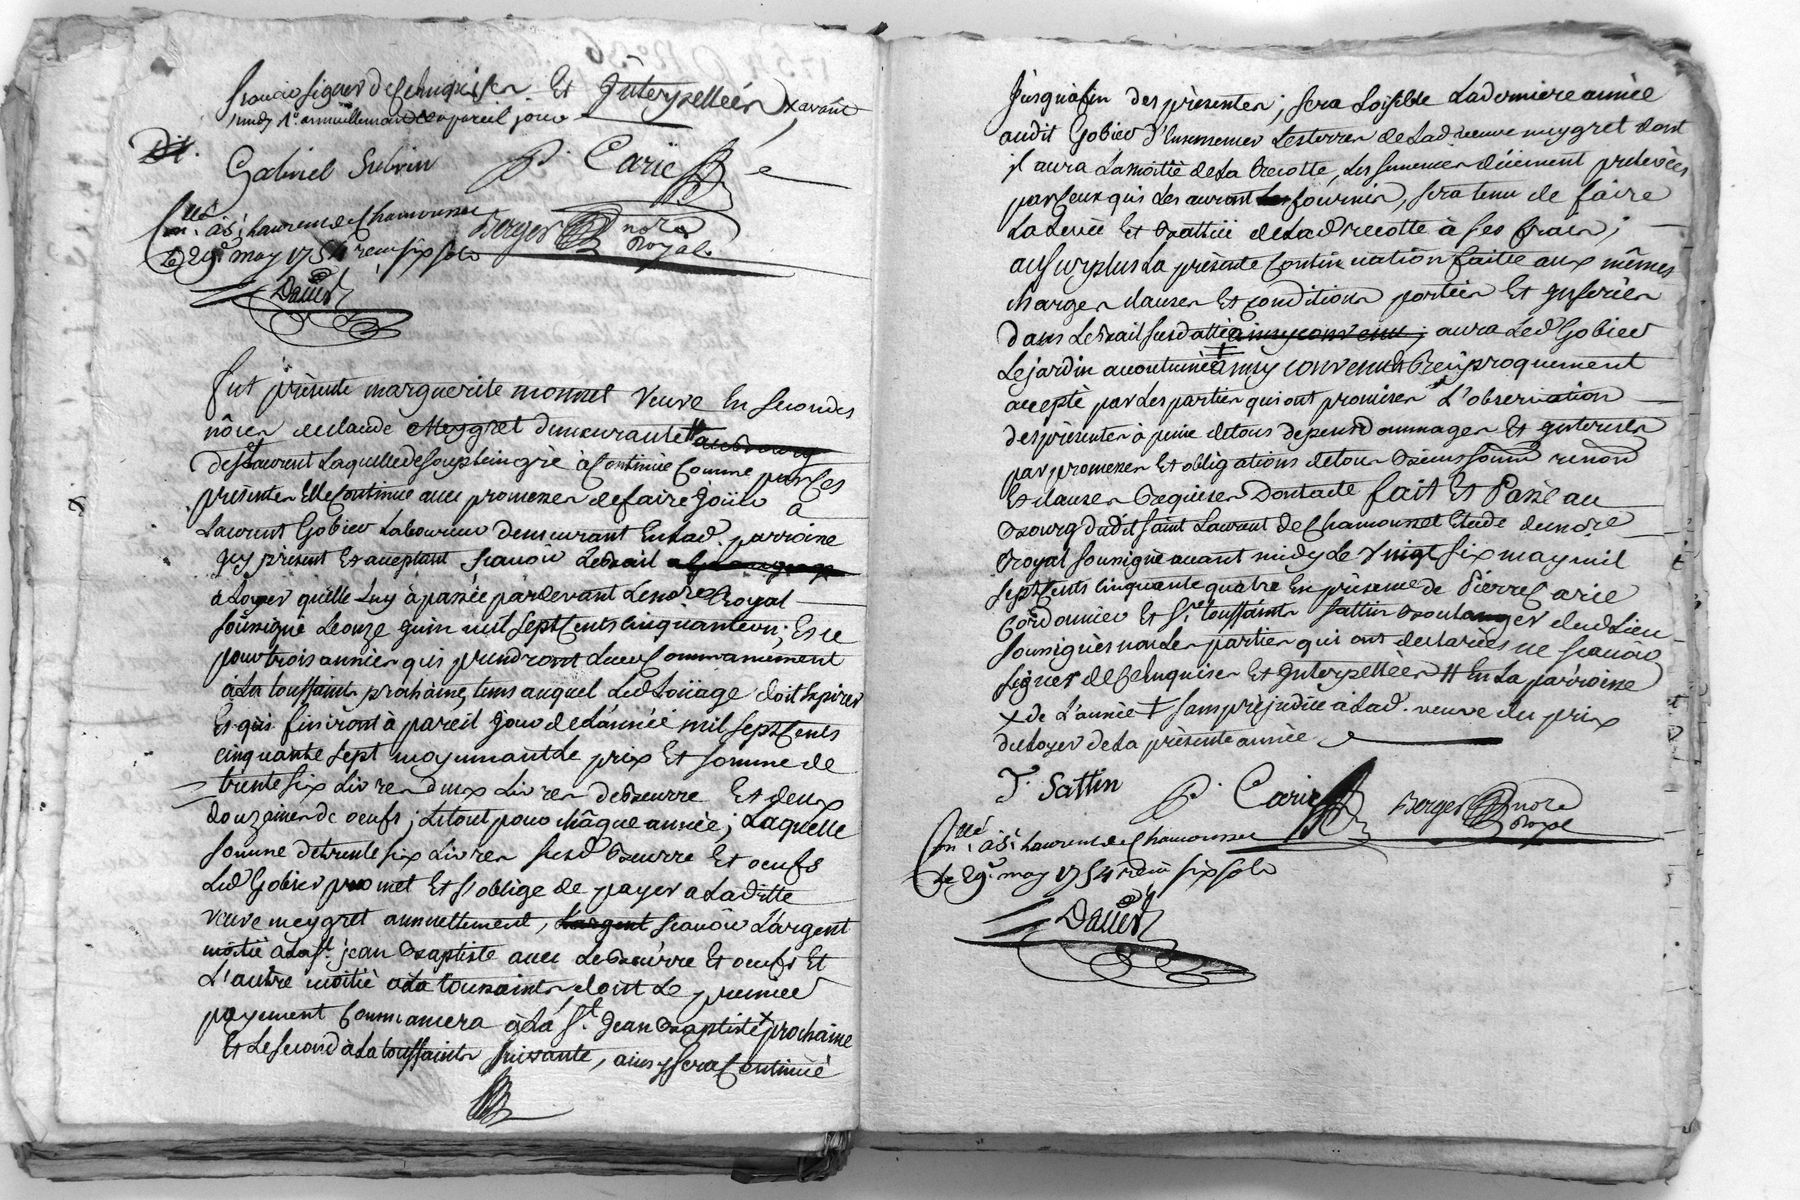 scavoir signer de ce enquises Et Interpellées x avant
midy 1° annuellement a pareil jour
Gabriel Subrin P. Carie
Con.llé à St Laurent de Chamousset Berger nore
Le 29e may 1754 reçu six sols Royal
Dauer
Fut présente marguerite monnet veuve En secondes
nôces de claude Meygret demeurante # au bourg
de St Laurent Laquelle de son plein gré à Continué Comme par Ces
présentes Elle Continue avec promesses de faire Joüir a
Laurent Gobier Laboureur demeurant En lad. parroisse
icy présent Et acceptant scavoir Le bail
a Loyer quelle Luy à passée pardevant Le nore Royal
soussigné Le onze juin mil sept Cents cinquante un; Et ce
pour trois années qui prendront Leur Commancement
à La toussaints prochaine, tems auquel Led Loüage doit Expirer
Et qui finiront à pareil Jour de L'année mil sept Cents
cinquante sept moyennant Le prix Et somme de
trente six Livres deux Livres de beurre Et deux
douzaines de oeufs; Le tout pour châque année; Laquelle
somme de trente six Livres susd Beurre Et oeufs
Led Gobier promet Et s'oblige de payer a La ditte
veuve meygret annuellement, Largent scavoir L'argent
moitié a La St. jean Baptiste avec Le Beurre Et oeufs Et
L'autre moitié a La toussaints dont Le premier
payement Commancera à La St. Jean Baptiste x prochaine
Et Le second à La toussaints suivante, ainsy sera Continué
Jusqu'a fin des présentes; sera Loisible La derniere année
audit Gobier d'Ensemencer Les terres de Lad. veuve meygret dont
il aura La moitié de La Recolte, Les semences dûement prelevées
par Ceux qui Les auront fournies, sera tenu de faire
La Levée Et Battüe de Lad recolte à ses frais;
au surplus La présente Continuation faitte aux mêmes
charges clauses Et conditions portées Et Inserées
dans Le Bail susdatté ainsy convenu; aura Led Gobier
Le jardin accoutumé ‡ ainsy convenu Reciproquement
accepté par Les parties qui ont promises L'observation
des présentes à peine de tous depens dommages Et Interests
par promesses Et obligations de tous Biens soumis renond
Et clauses Requises Dont acte fait Et Passé au
Bourg dudit saint Laurent de Chamousset Etude du nore
Royal soussigné avant midy Le vingt six may mil
sept Cents Cinquante quatre En présence de Pierre Carie
Cordonnier Et Sr. toussaints sattin Boulanger dud Lieu
soussignés non Les parties qui ont declarées ne scavoir
signer de ce enquises Et Interpellées # En La parroisse
x de L'année ‡ sans préjudice à Lad. veuve du prix
du Loyer de La présente année
T. Sattin P. Carie Berger nore
Royal
Con.llé à St Laurent de Chamousset
Le 29e may 1754 reçu six sols
Dauer